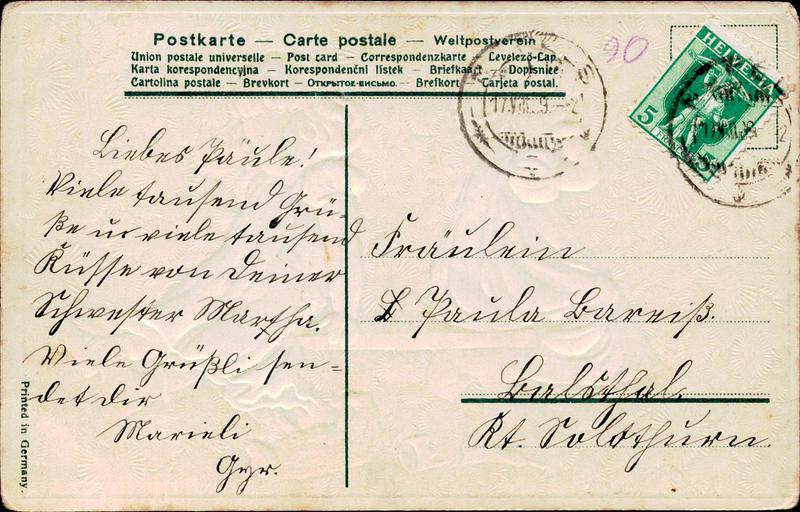 Postkarte — Carte postale — Weltpostverein
Union postale universelle — Post card — Correspondenzkarte Levelező-Lap
Karta korespondencyjna — Korespondenční lístek — Briefkaart — Dopisnice
Cartolina postale — Brevkort — Открытое-письмо — Brefkort — Carjeta postal.
90
HELVETIA
5
17.VIII.
Liebes Päule!
Viele tausend Grü-
ße u viele tausend
Küsse von Deiner
Schwester Martha.
Viele Grüßli sen-
det dir
Marieli
Gyr.
Fräulein
Paula Bareiß.
Balsthal.
Kt. Solothurn.
Printed in Germany.